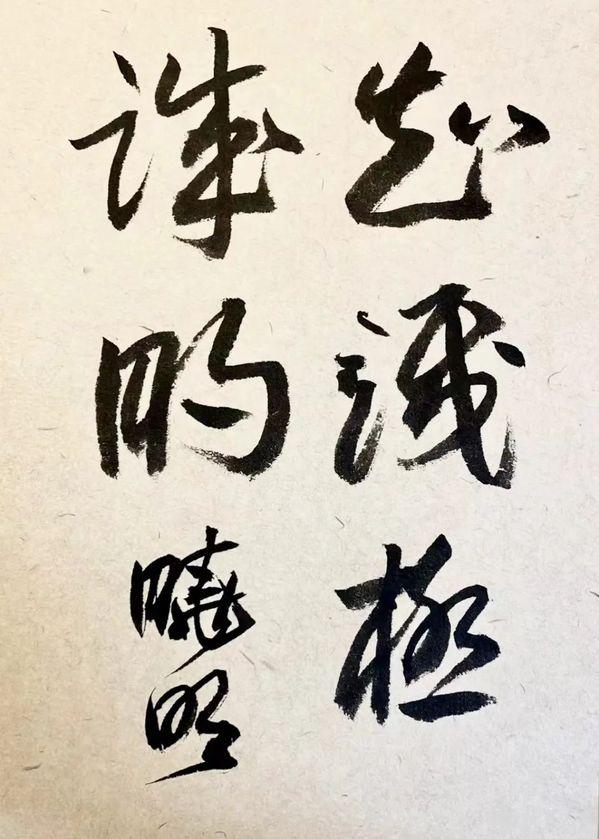 知識極
誠的
曉明